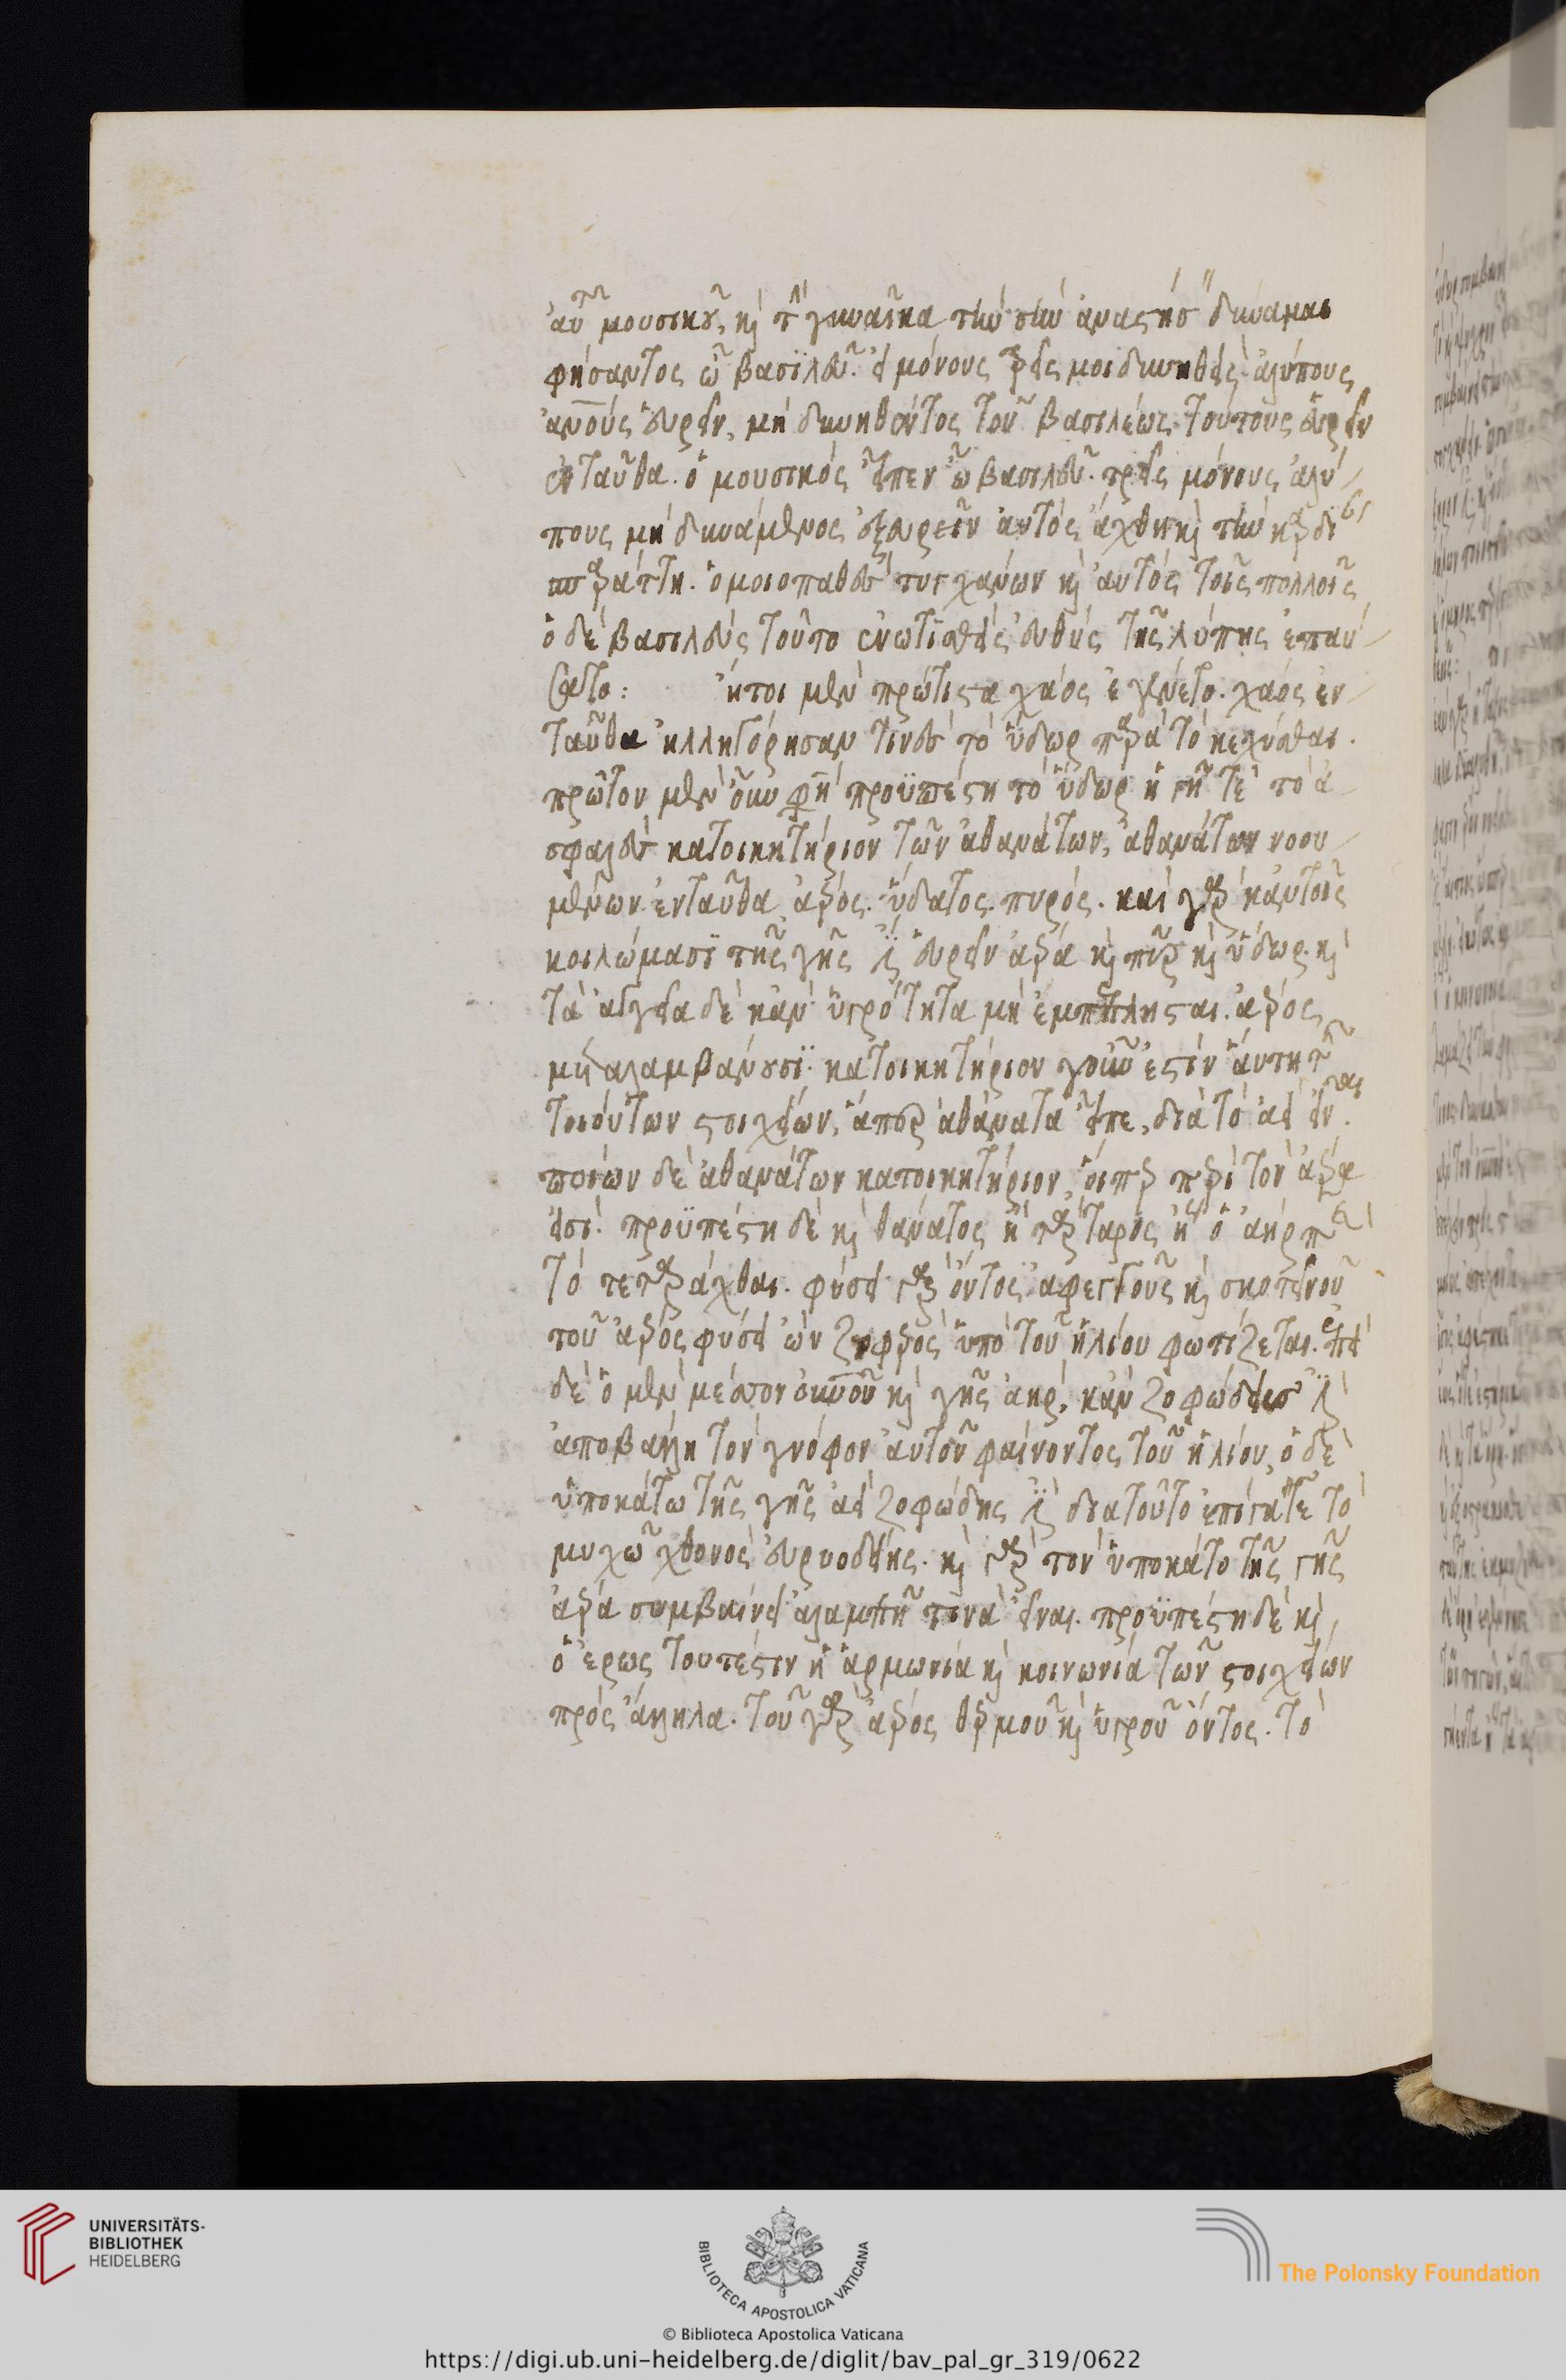 αὐτοῦ μουσικοῦ, καὶ τὴν γυναῖκα τὴν σὴν ἀναστήσειν δύναμαι
φήσαντος ὦ βασϊλεῦ. εἰ μόνους τρεῖς μοι δυνηθείς ἀλύπους
ἀνους εὑρεῖν, μὴ δυνηθέντος τοῦ βασιλέως τούτους εὑρεῖν
ἐνταῦθα. ὁ μουσικός εἶπεν ὦ βασιλεῦ. τρεῖς μόνους ἀλύ
πους μὴ δυνάμενος ἐξευρεῖν αὐτός ἄχθη καὶ τὴν καρδι
ταράττη. ὁμοιοπαθεῖς τυγχάνων καὶ αὐτός τοῖς πολλοῖς
ὁ δὲ βασιλεύς τοῦτο ἐνωτισθείς εὐθύς τῆς λύπης ἐπαύ
σατο: ἤτοι μὲν πρώτιστα χάος ἐγένετο. χάος ἐν
ταῦθα ἠλληγόρησαν τινὲς τὸ ὕδωρ παρὰ τὸ κεχύσθαι.
πρῶτον μὲν οὖν φησὶ προϋπέστη τὸ ὕδωρ ἡ γῆ τε τὸ ἀ
σφαλὲς κατοικητήριον τῶν ἀθανάτων, ἀθανάτων νοου
μένων ἐνταῦθα ἀέρος. ὕδατος. πυρός. καὶ γὰρ κἀν τοῖς
κοιλώμασϊ τῆς γῆς ἐστὶν εὑρεῖν ἀέρα καὶ πῦρ καὶ ὕδωρ. καὶ
τὰ ἀγγεῖα δὲ κἂν ὑγρότητα μὴ ἐμπέπλησται. ἀέρος
μεταλαμβάνουσϊ. κατοικητήριον γοῦν ἐστὶν αὕτη τῶν
τοιούτων στοιχείων, ἅπερ ἀθάνατα εἶπε, διὰ τὸ ἀεὶ εἶναι.
ποίων δὲ ἀθανάτων κατοικητήριον, οἵπερ περὶ τὸν ἀέρα
εἰσί. προϋπέστη δὲ καὶ θανάτος ἢ τάρταρος ἤτοι ὁ ἀὴρ παρὰ
τὸ τεταράχθαι. φύσει γὰρ ὄντος ἀφεγγοῦς καὶ σκοτεινοῦ
τοῦ ἀέρος φύσει ὢν ζοφερὸς ὑπὸ τοῦ ἡλίου φωτίζεται. ἐπεὶ
δὲ ὁ μὲν μέσον οὐνοῦ καὶ γῆς ἀὴρ, κἂν ζοφώδης ἐστὶ
ἀποβάλλη τὸν γνόφον αὐτοῦ φαίνοντος τοῦ ἡλίου, ὁ δὲ
ὑποκάτω τῆς γῆς ἀεὶ ζοφώδης ἐστὶ διατοῦτο ἐπήγαγε τὸ
μυχῶ χθονὸς εὐρυοδείης. καὶ γὰρ τὸν ὑποκάτο τῆς γῆς
ἀέρα συμβαίνει ἀλαμπῆ τινὰ εἶναι. προϋπέστη δὲ καὶ
ὁ ἔρως τουτέστιν ἡ ἁρμωνία καὶ κοινωνία τῶν στοιχείων
πρὸς ἄλληλα. τοῦ γὰρ ἀέρος θερμοῦ καὶ ὑγροῦ ὄντος. τὸ
UNIVERSITÄTS-
BIBLIOTHEK
HEIDELBERG
BIBLIOTECA APOSTOLICA VATICANA
The Polonsky Foundation
© Biblioteca Apostolica Vaticana
https://digi.ub.uni-heidelberg.de/diglit/bav_pal_gr_319/0622